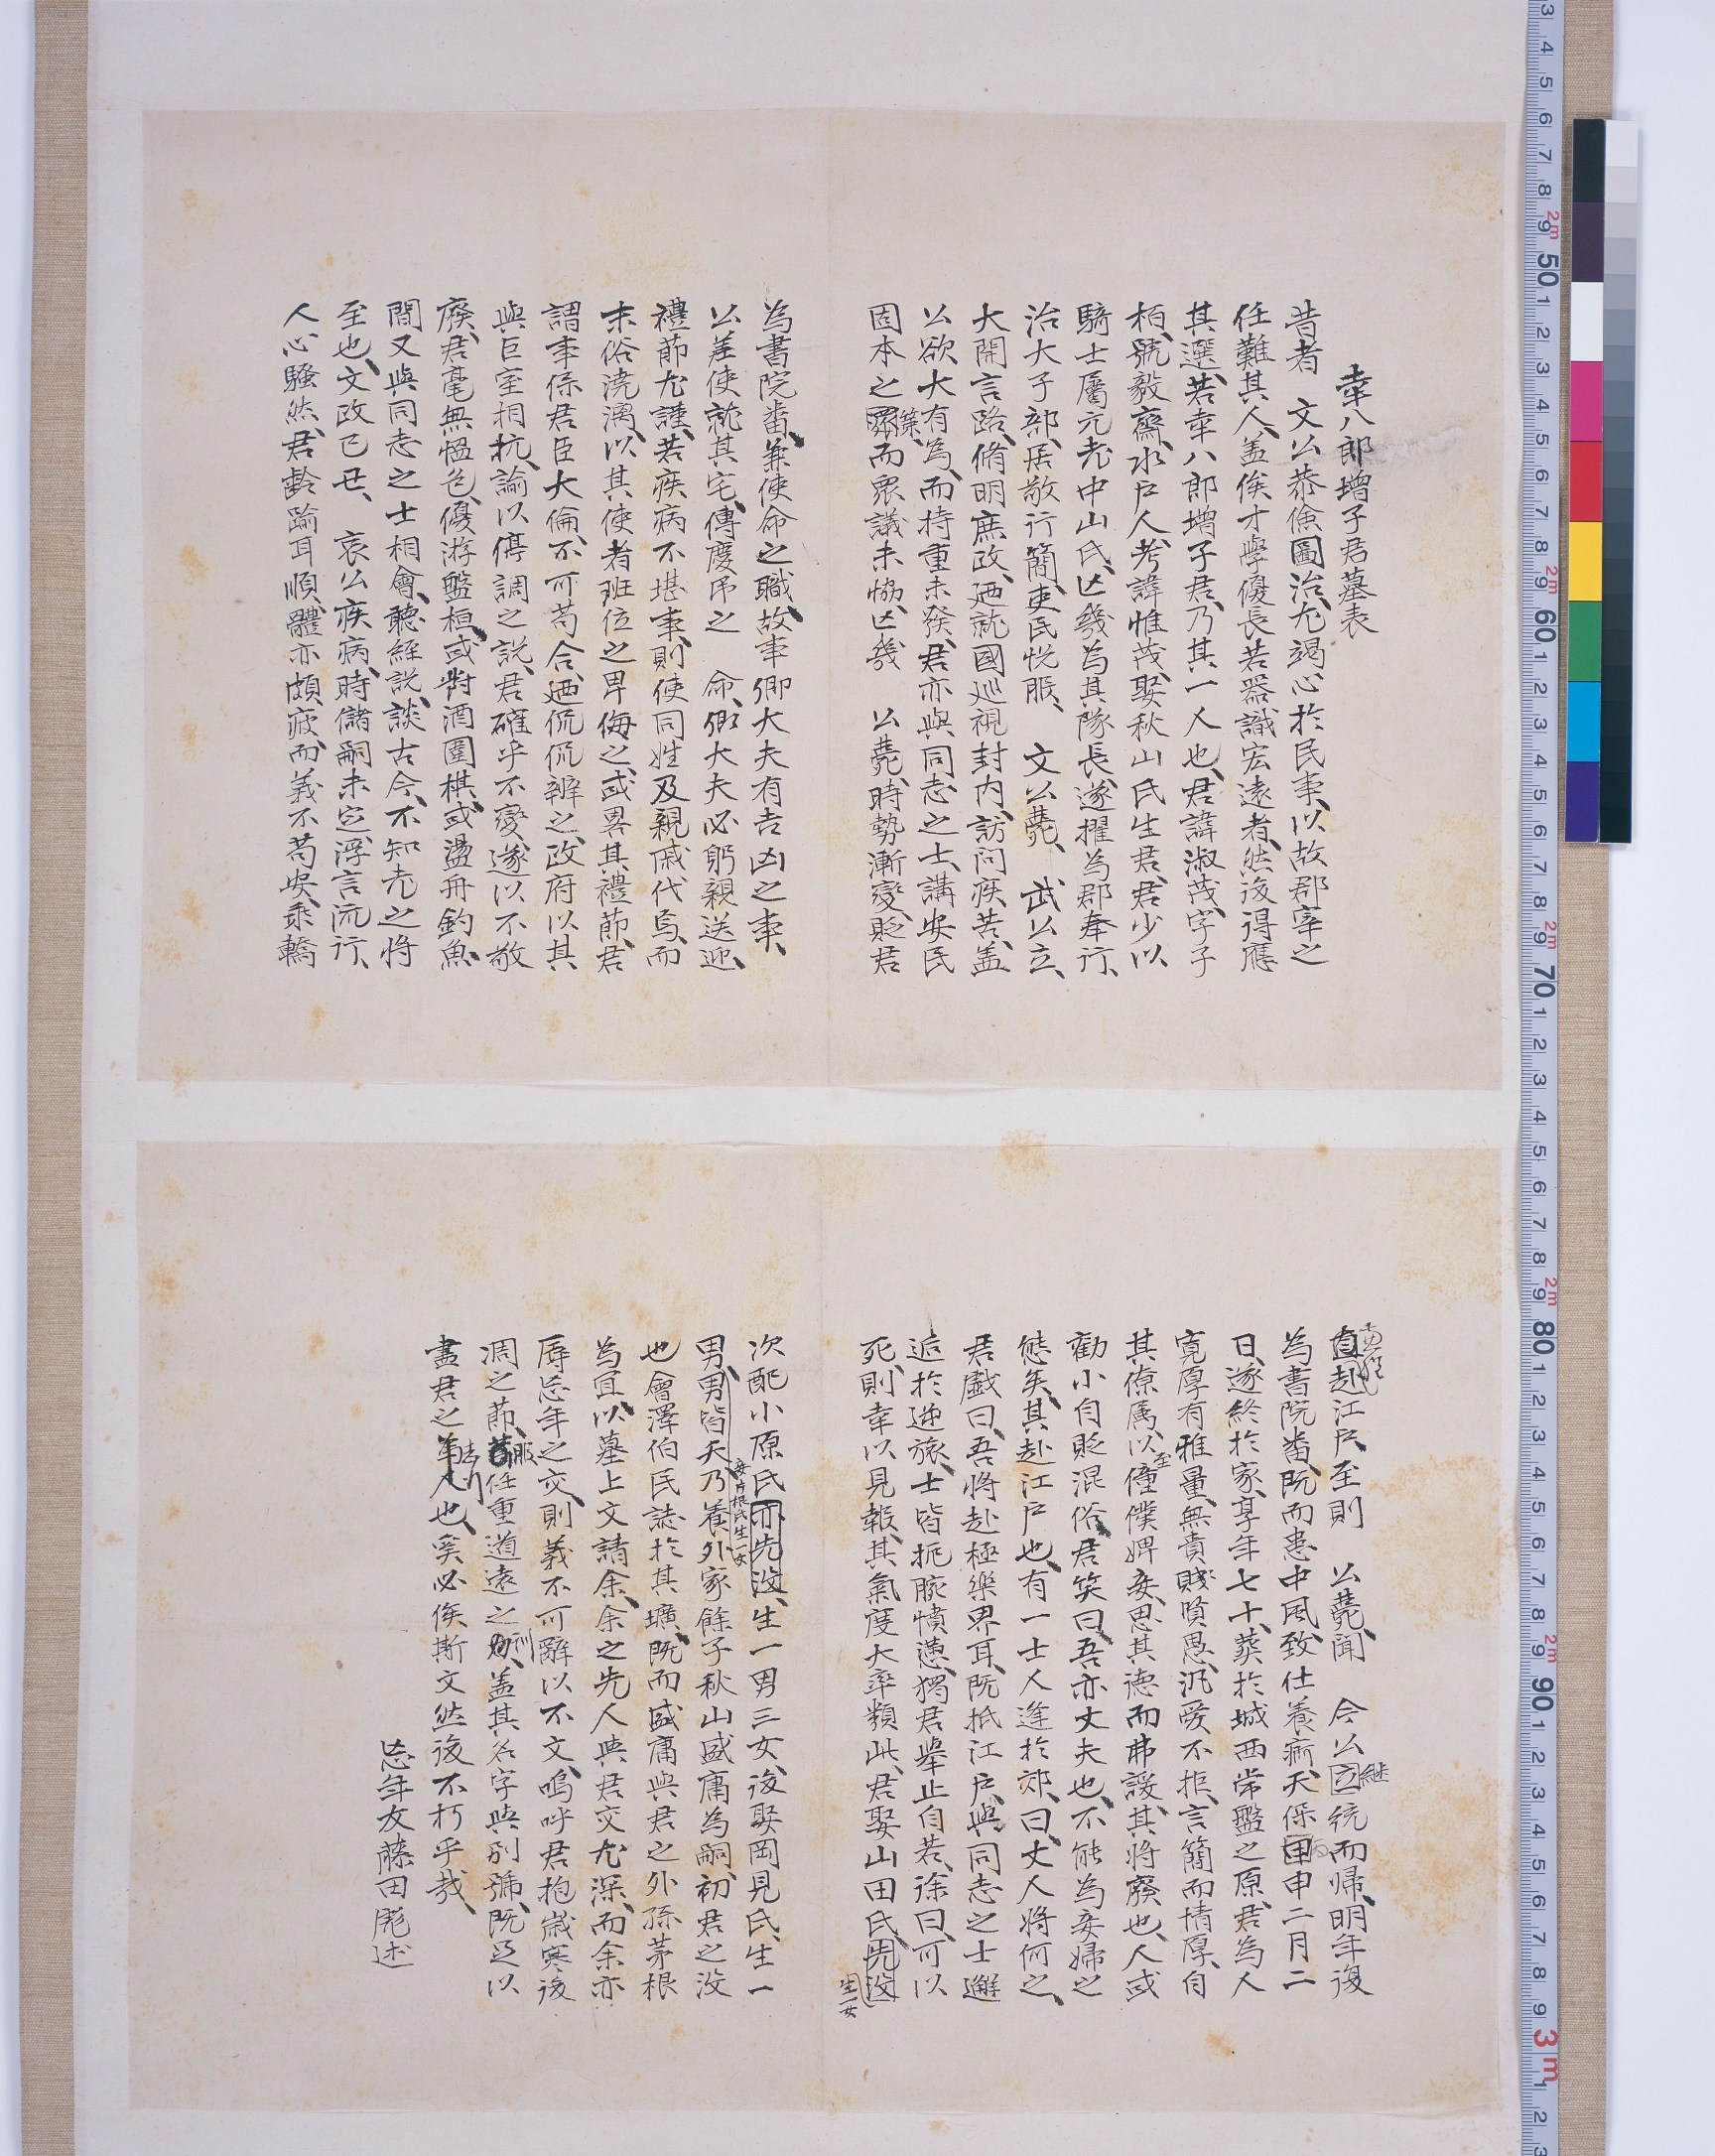 幸八郎増子君墓表
昔者　文公恭儉圖治、尤竭心於民事、以故郡宰之
任難其人、盖俟才學優長、若器識宏遠者、然後得應
其選、若幸八郎増子君、乃其一人也、君諱淑茂、字子
栢、號毅齋、水戸人、考諱惟茂、娶秋山氏生君、君少以
騎士屬元老中山氏、亡幾為其隊長、遂擢為郡奉行、
治大子部、居敬行簡、吏民悦服、　文公薨、　武公立、
大開言路、脩明庶政、廼就國巡視封内、訪问疾苦、盖
公欲大有為、而持重未發、君亦與同志之士、講安民
固本之策、而衆議未恊、亡幾　公薨、時勢漸變、貶君
為書院畨、兼使命之職、故事卿大夫有吉凶之事、
公差使就其宅、傳慶吊之　命、卿大夫必躬親送迎、
禮莭尤謹、若疾病不堪事、則使同姓及親戚代焉、而
末俗澆漓、以其使者班位之卑侮之、或畧其禮莭、君
謂事係君臣大倫、不可苟合、廼侃侃辨之、政府以其
與巨室相抗、諭以停調之説、君確乎不變、遂以不敬
廢、君毫無愠色、優游盤桓、或對酒圍棋、或盪舟釣魚、
間又與同志之士相會、聽經説、談古今、不知老之將
至也、文政己丑、　哀公疾病、時儲嗣未定、浮言流行、
人心騷然、君齡踰耳順、體亦頗疲、而義不苟安、乘轎
赴江戸、至則　公薨、聞　今公継統而帰、明年復
為書院畨、既而患中風、致仕養痾、天保丙申二月二
日、遂終於家、享年七十、葬於城西常盤之原、君為人
寛厚有雅量、無貴賤賢愚、汎愛不拒、言簡而情厚、自
其僚属以至僮僕婢妾、思其德而弗諼、其將廢也、人或
勸小自貶混俗、君笑曰、吾亦丈夫也、不能為妾婦之
態矣、其赴江戸也、有一士人逢於郊、曰、丈人將何之、
君戯曰、吾將赴極樂界耳、既抵江戸、與同志之士邂
逅於逆旅、士皆扼腕憤懣、獨君舉止自若、徐曰、可以
死、則幸以見報、其氣度大率類此、君娶山田氏、先没、
生一女
次配小原氏、亦先没、生一男三女、後娶岡見氏、生一
男、男皆夭、乃養外家餘子秋山盛庸為嗣、初君之没
妾古根氏生一女
也、會澤伯民誌於其壙、既而盛庸與君之外孫茅根
為宜、以墓上文請余、余之先人與君交尤深、而余亦
辱忘年之交、則義不可辭以不文、嗚呼君抱歳寒後
凋之莭、服任重道遠之訓、盖其名字與别號、既足以
盡君之人也、奚必俟斯文然後不朽乎哉、
忘年友藤田彪述